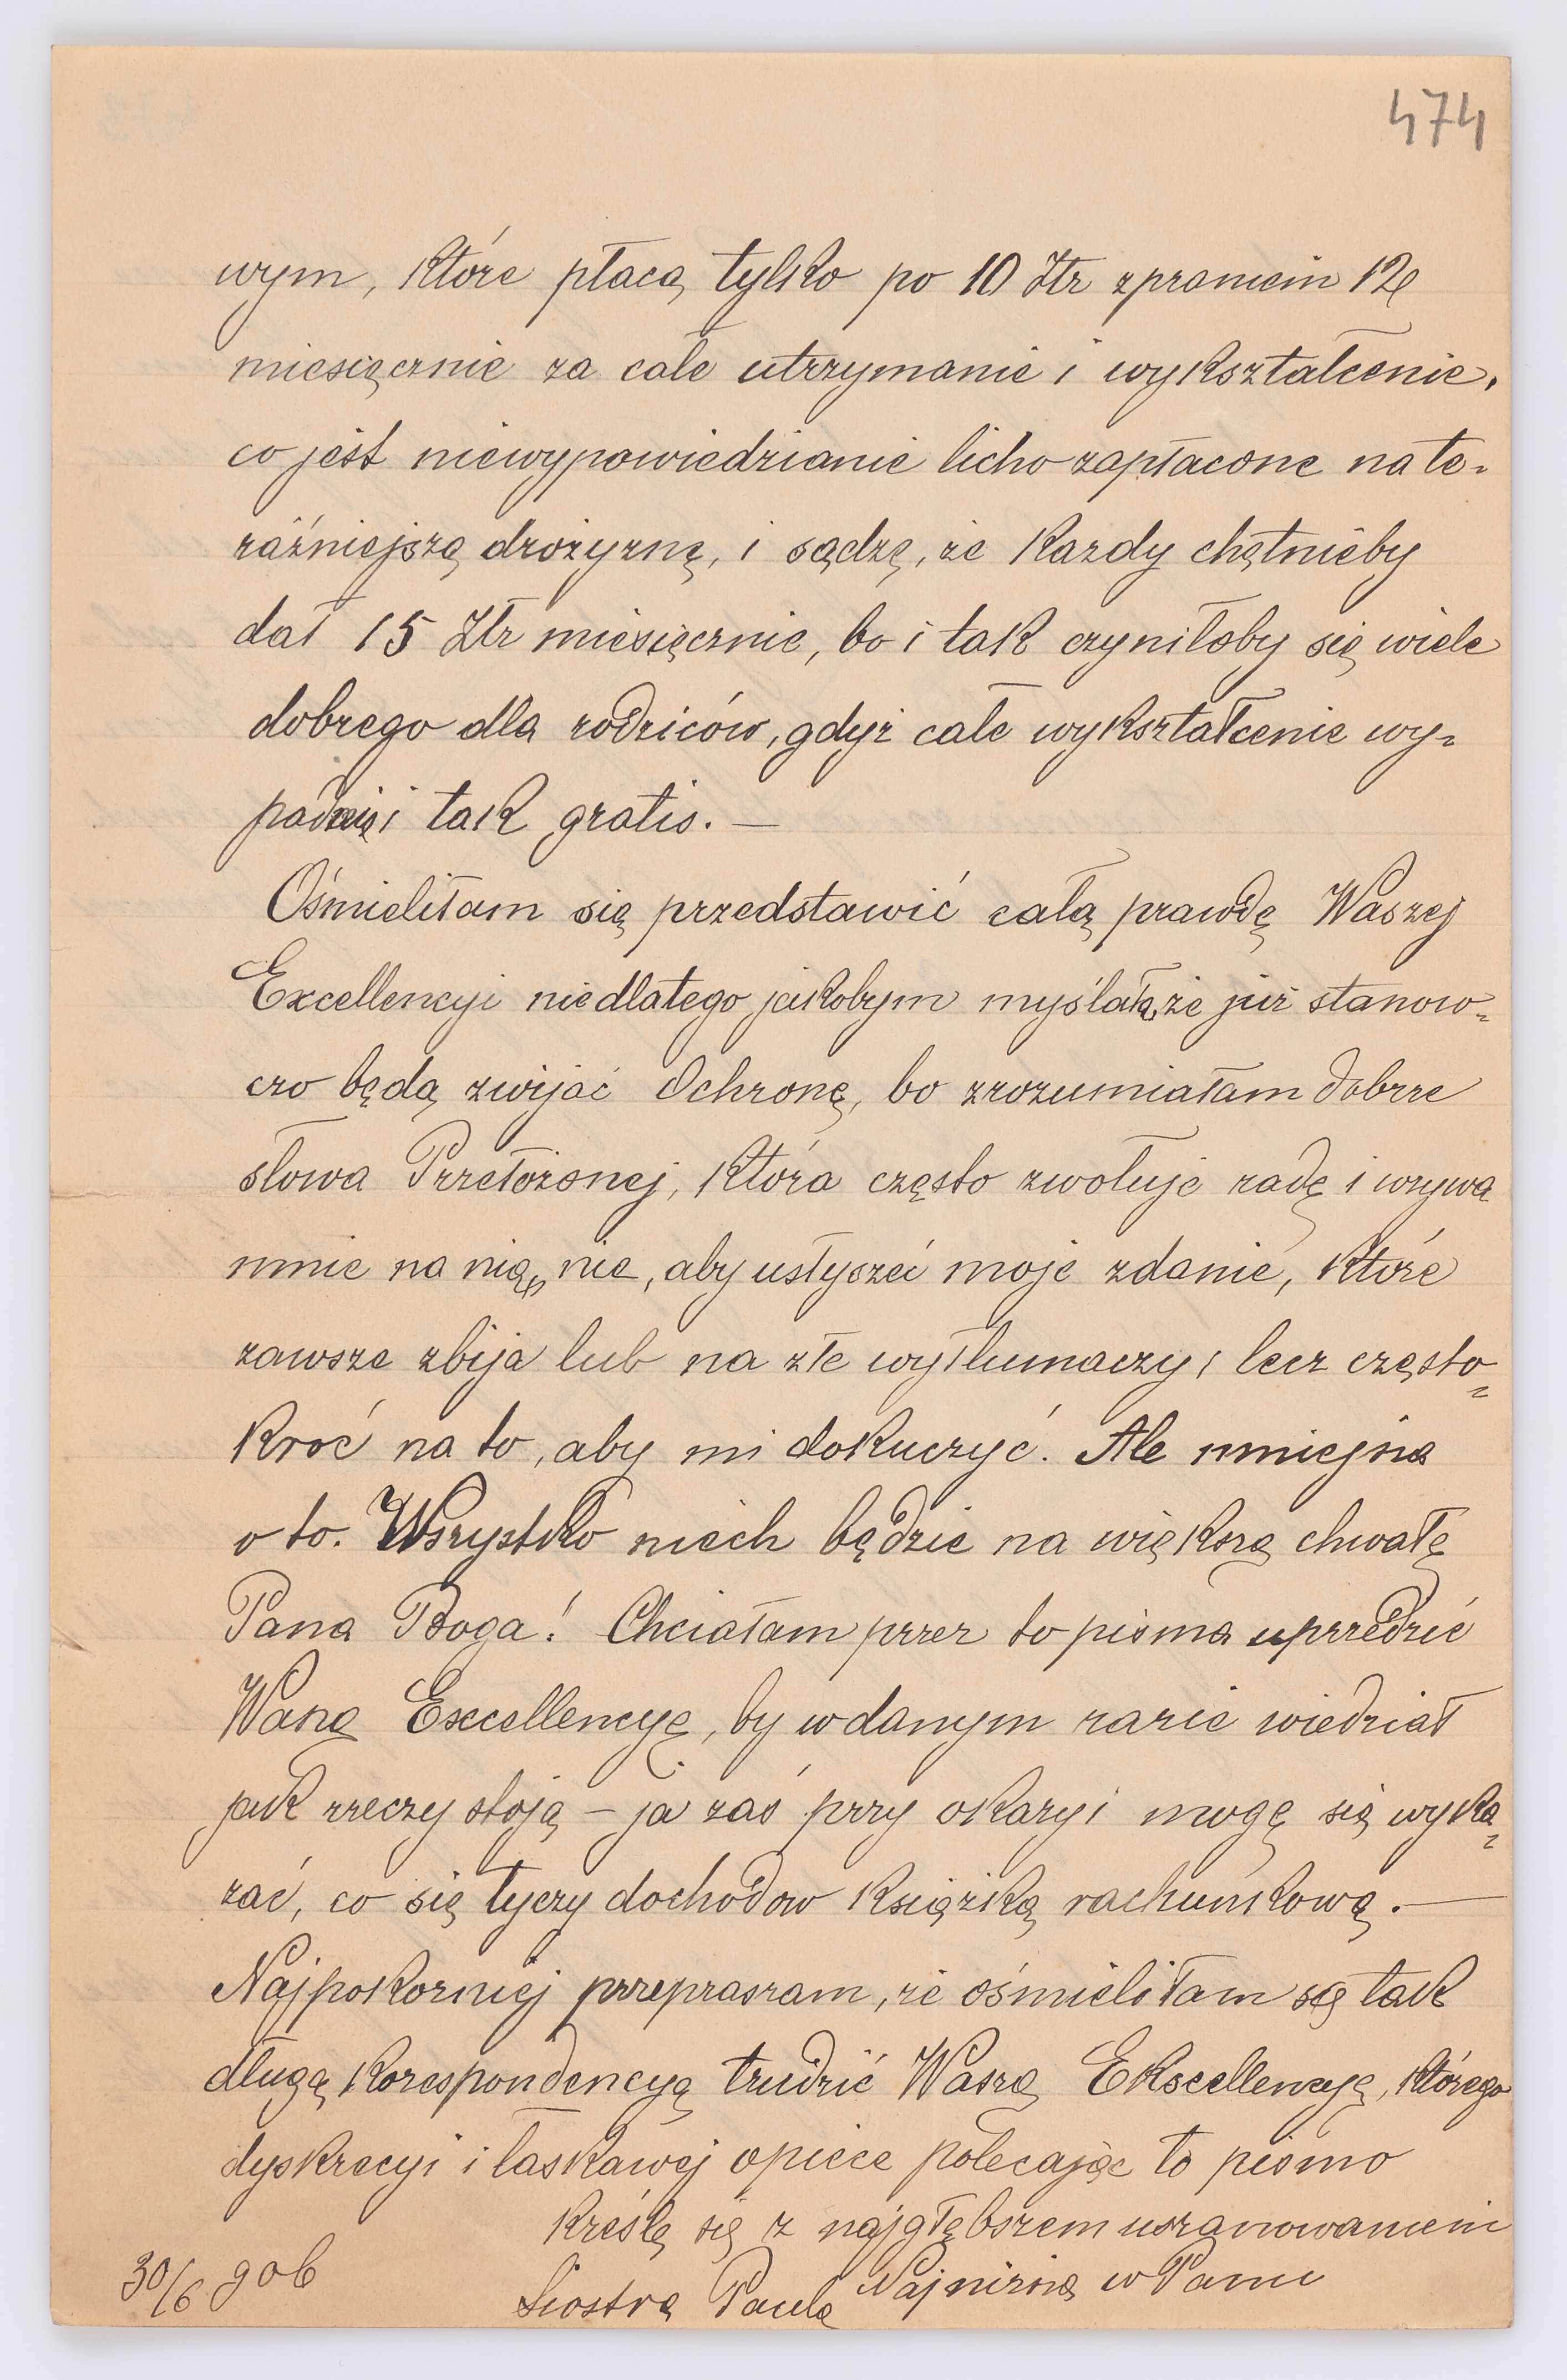 474
wym, które płacą tylko po 10 Złr z praniem 12
miesięcznie za całe utrzymanie i wykształcenie,
co jest niewypowiedzianie licho zapłacone na te-
raźniejszą drożyznę, i sądzę, że każdy chętnieby
dał 15 Złr miesięcznie, bo i tak czyniłoby się wiele
dobrego dla rodziców, gdyż całe wykształcenie wy-
i tak gratis. —
Ośmieliłam się przedstawić całą prawdę Waszej
Excellencyi nie dlatego jakobym myślała, że już stanow-
czo będą zwijać Ochronę, bo zrozumiałam dobrze
słowa Przełożonej, która często zwołuje radę i wzywa
mnie na nią, nie, aby usłyszeć moje zdanie, które
zawsze zbija lub na złe wytłumaczy, lecz często-
kroć na to, aby mi dokuczyć. Ale mniejsza
o to. Wszystko niech będzie na większą chwałę
Pana Boga! Chciałam przez to pismo uprzedzić
Waszą Excellencyę, by w danym razie wiedział
jak rzeczy stoją – ja zaś przy okazyi mogę się wyka-
zać, co się tyczy dochodow książką rachunkową. —
Najpokorniej przepraszam, że ośmieliłam się tak
długą korespondencyą trudzić Waszą Ekscellencyę, którego
dyskrecyi i łaskawej opiece polecając to pismo
kreślę się z najgłębszem uszanowaniem
Najniższa w Panu
Siostra Paula
30/6 906